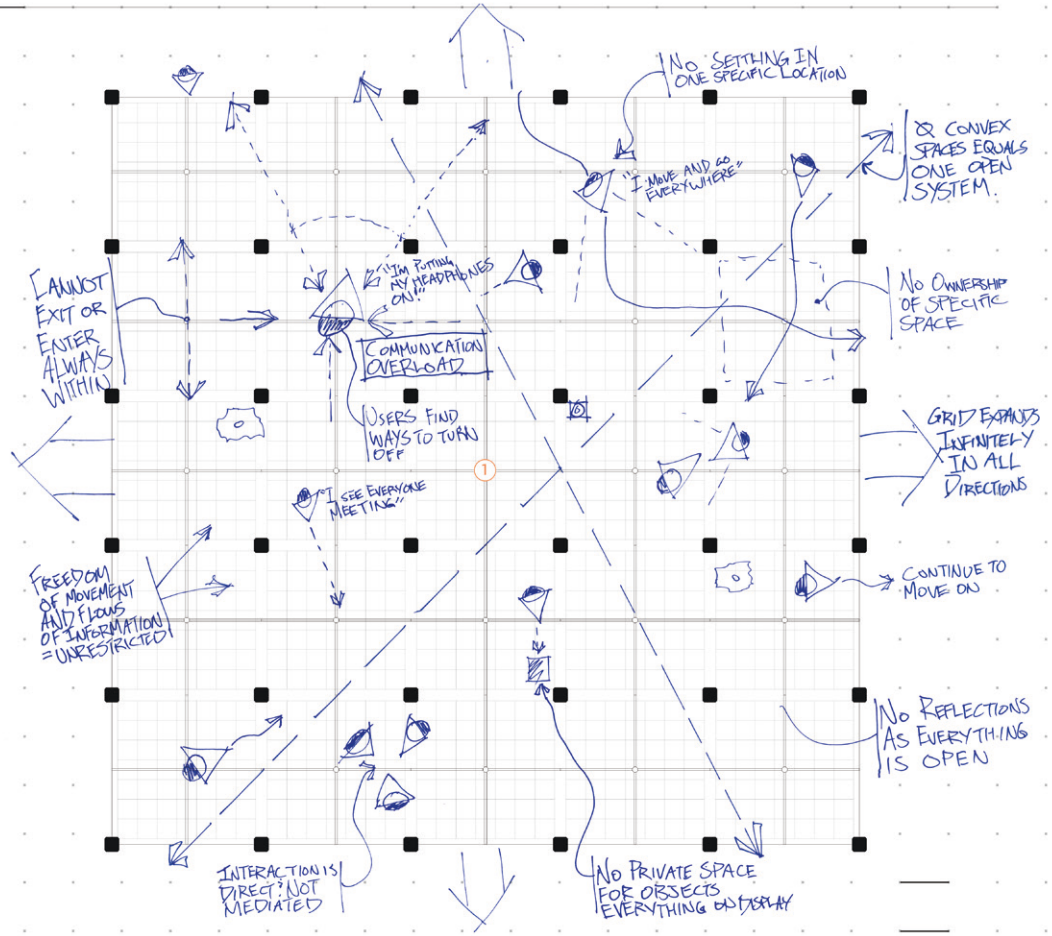 NO SETTLING IN
ONE SPECIFIC LOCATION
"I MOVE AND GO
EVERYWHERE"
Ø CONVEX
SPACES EQUALS
ONE OPEN
SYSTEM.
CANNOT
EXIT OR
ENTER
ALWAYS
WITHIN
"I'M PUTTING
MY HEADPHONES
ON!"
COMMUNICATION
OVERLOAD
NO OWNERSHIP
OF SPECIFIC
SPACE
USERS FIND
WAYS TO TURN
OFF
GRID EXPANDS
INFINITELY
IN ALL
DIRECTIONS
1
"I SEE EVERYONE
MEETING"
FREEDOM
OF MOVEMENT
AND FLOWS
OF INFORMATION
=UNRESTRICTED
CONTINUE TO
MOVE ON
NO REFLECTIONS
AS EVERYTHING
IS OPEN
INTERACTION IS
DIRECT: NOT
MEDIATED
NO PRIVATE SPACE
FOR OBJECTS
EVERYTHING ON DISPLAY